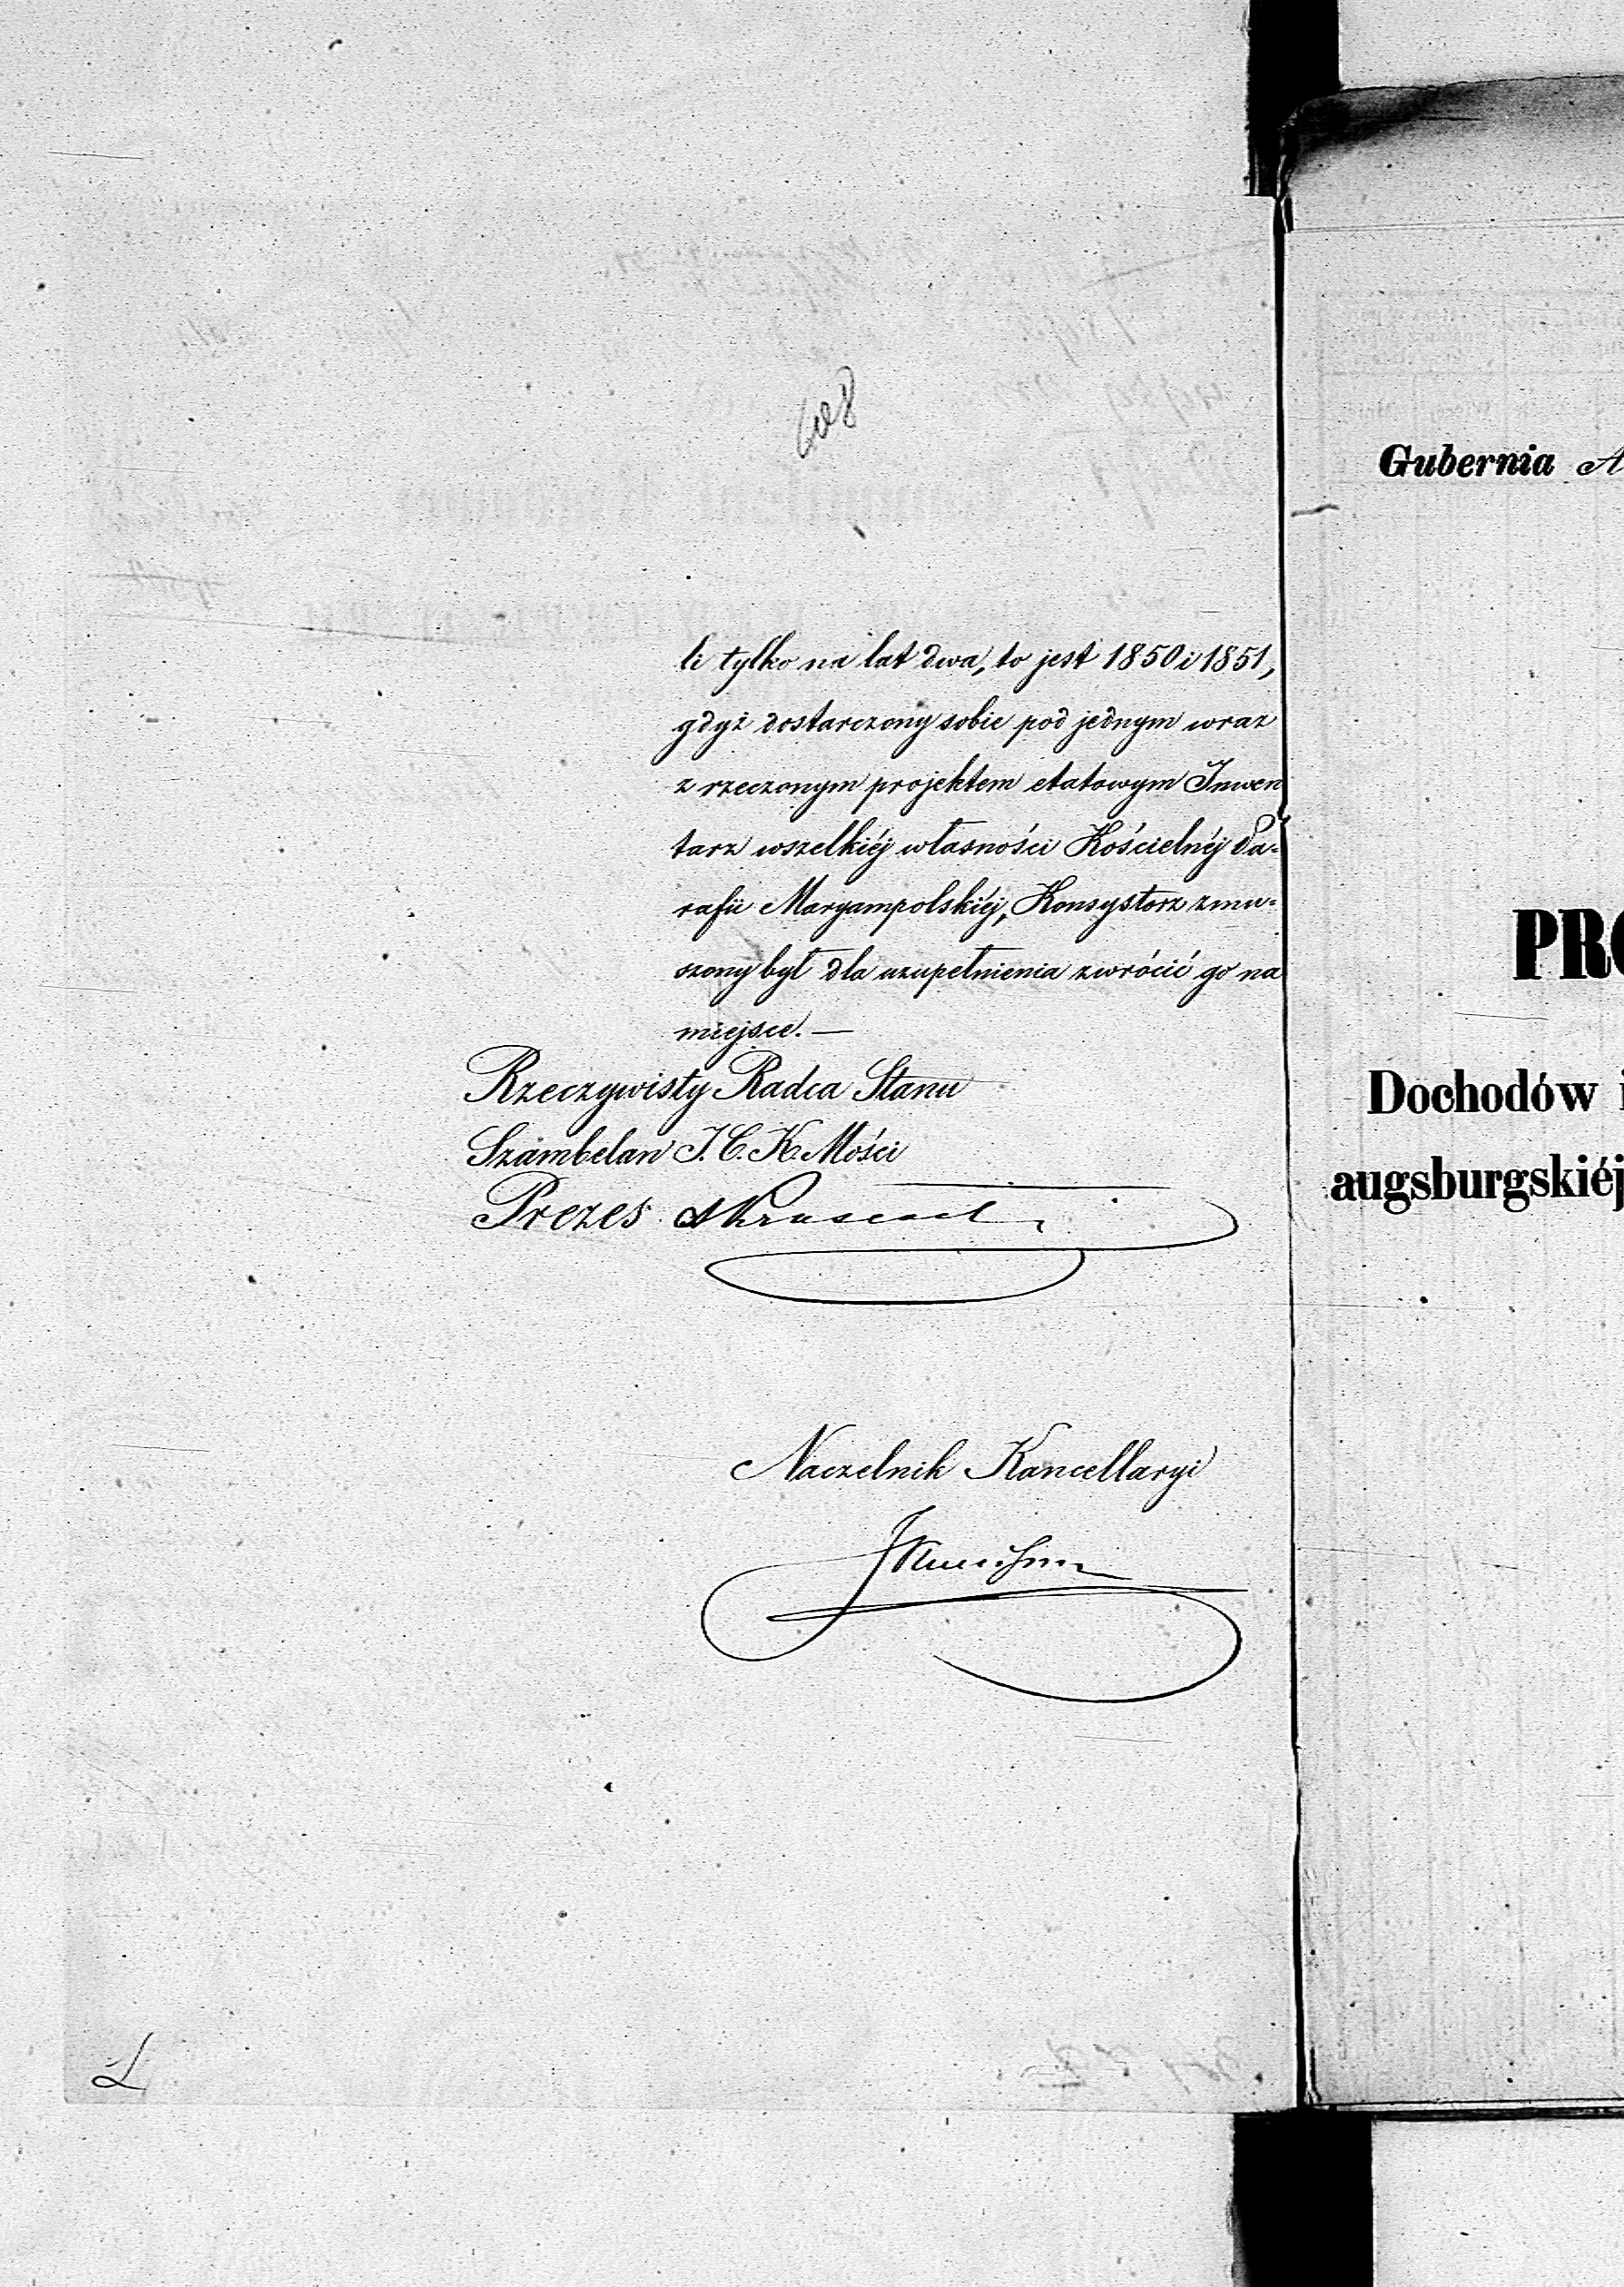 608
li tylko na lat dwa, to jest 1850 i 1851,
gdyż dostarczony sobie pod jednym wraz
z rzeczonym projektem etatowym Inwen
tarz wszelkiéj własności Kościelnéj Pa-
rafii Maryampolskiéj, Konsystorz zmu-
szony był dla uzupełnienia zwrócić go na
miejsce. —
Rzeczywisty Radca Stanu
Szambelan J. C. K. Mości
Prezes
Naczelnik Kancellaryi
Gubernia A
PRO
Dochodów i
augsburgskiéj